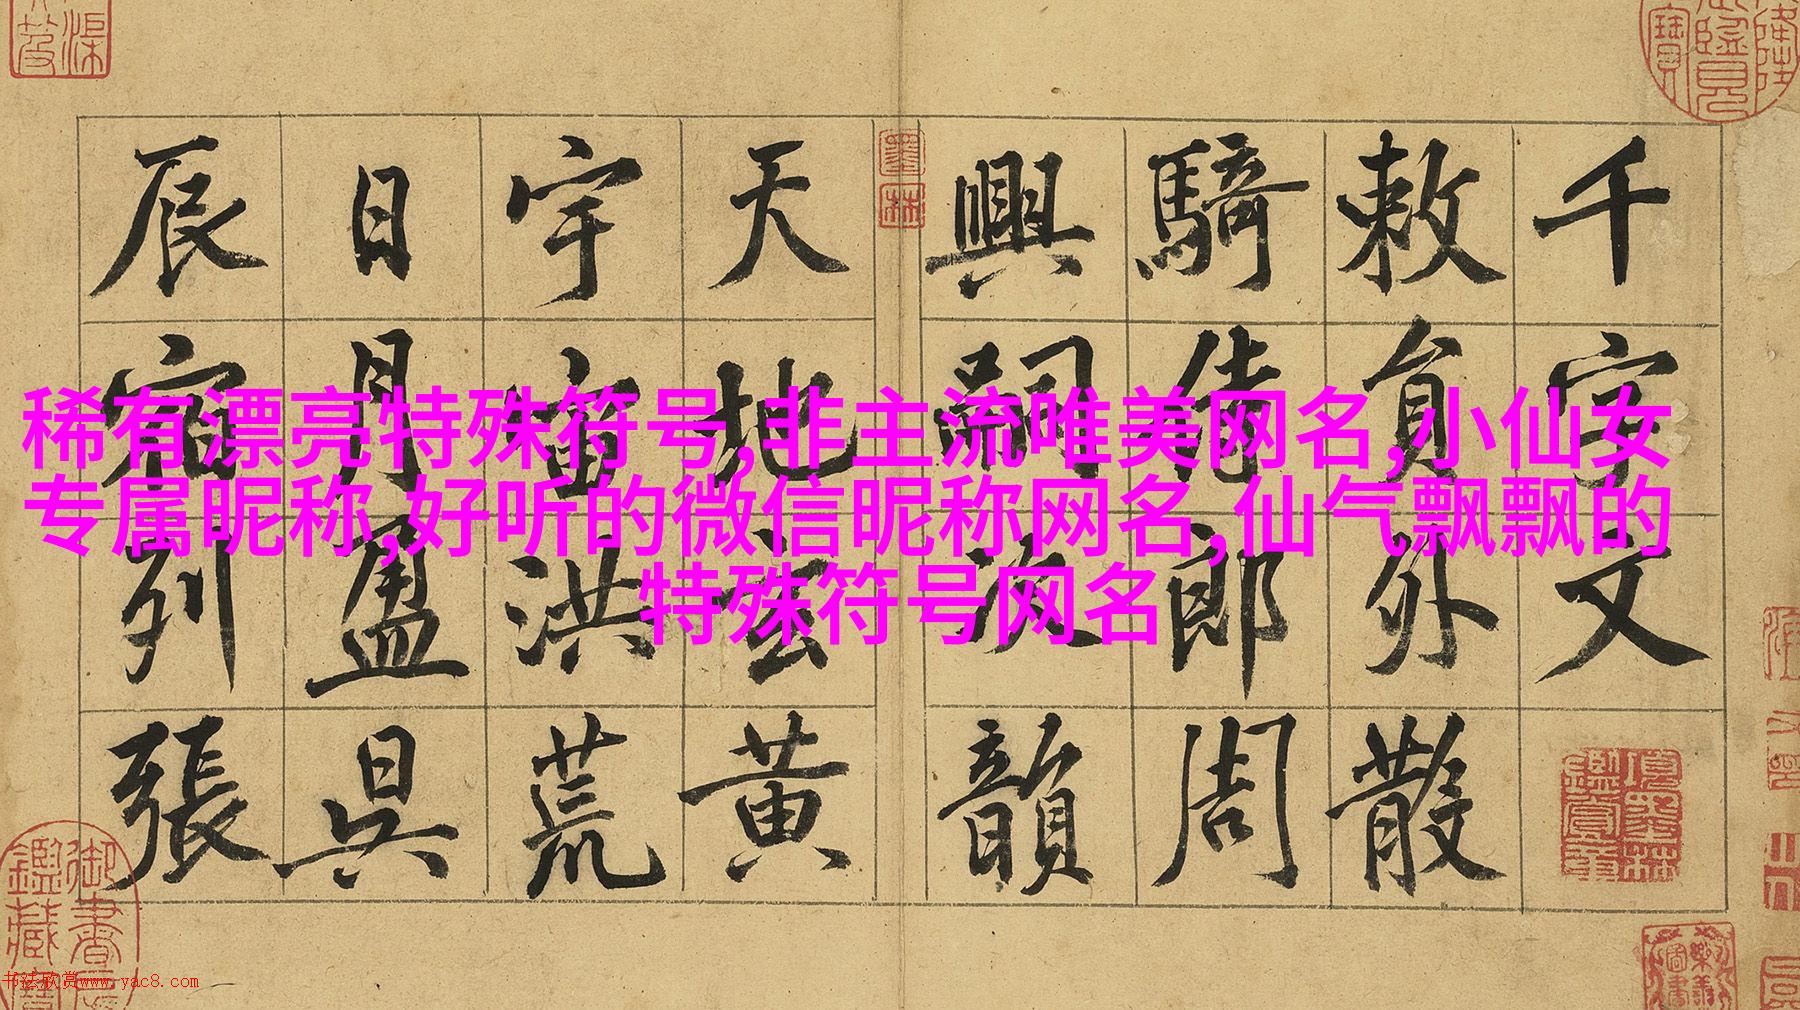 稀有漂亮特殊符号,非主流唯美网名,小仙女
专属昵称,好听的微信昵称网名,仙气飘飘的
特殊符号网名
千字文
敕員外散
騎侍郎周
興嗣次韻
天地玄黄
宇宙洪荒
日月盈昃
辰宿列張
书法欣赏www.yac8.com